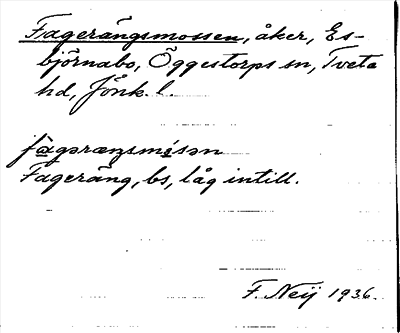 Fagerängsmossen, åker, Es-
björnabo, Öggestorps sn, Tveta
hd, Jönk. l.
fàgəræŋsmɩ́sən
Fageräng, bs, låg intill.
F. Neij 1936.